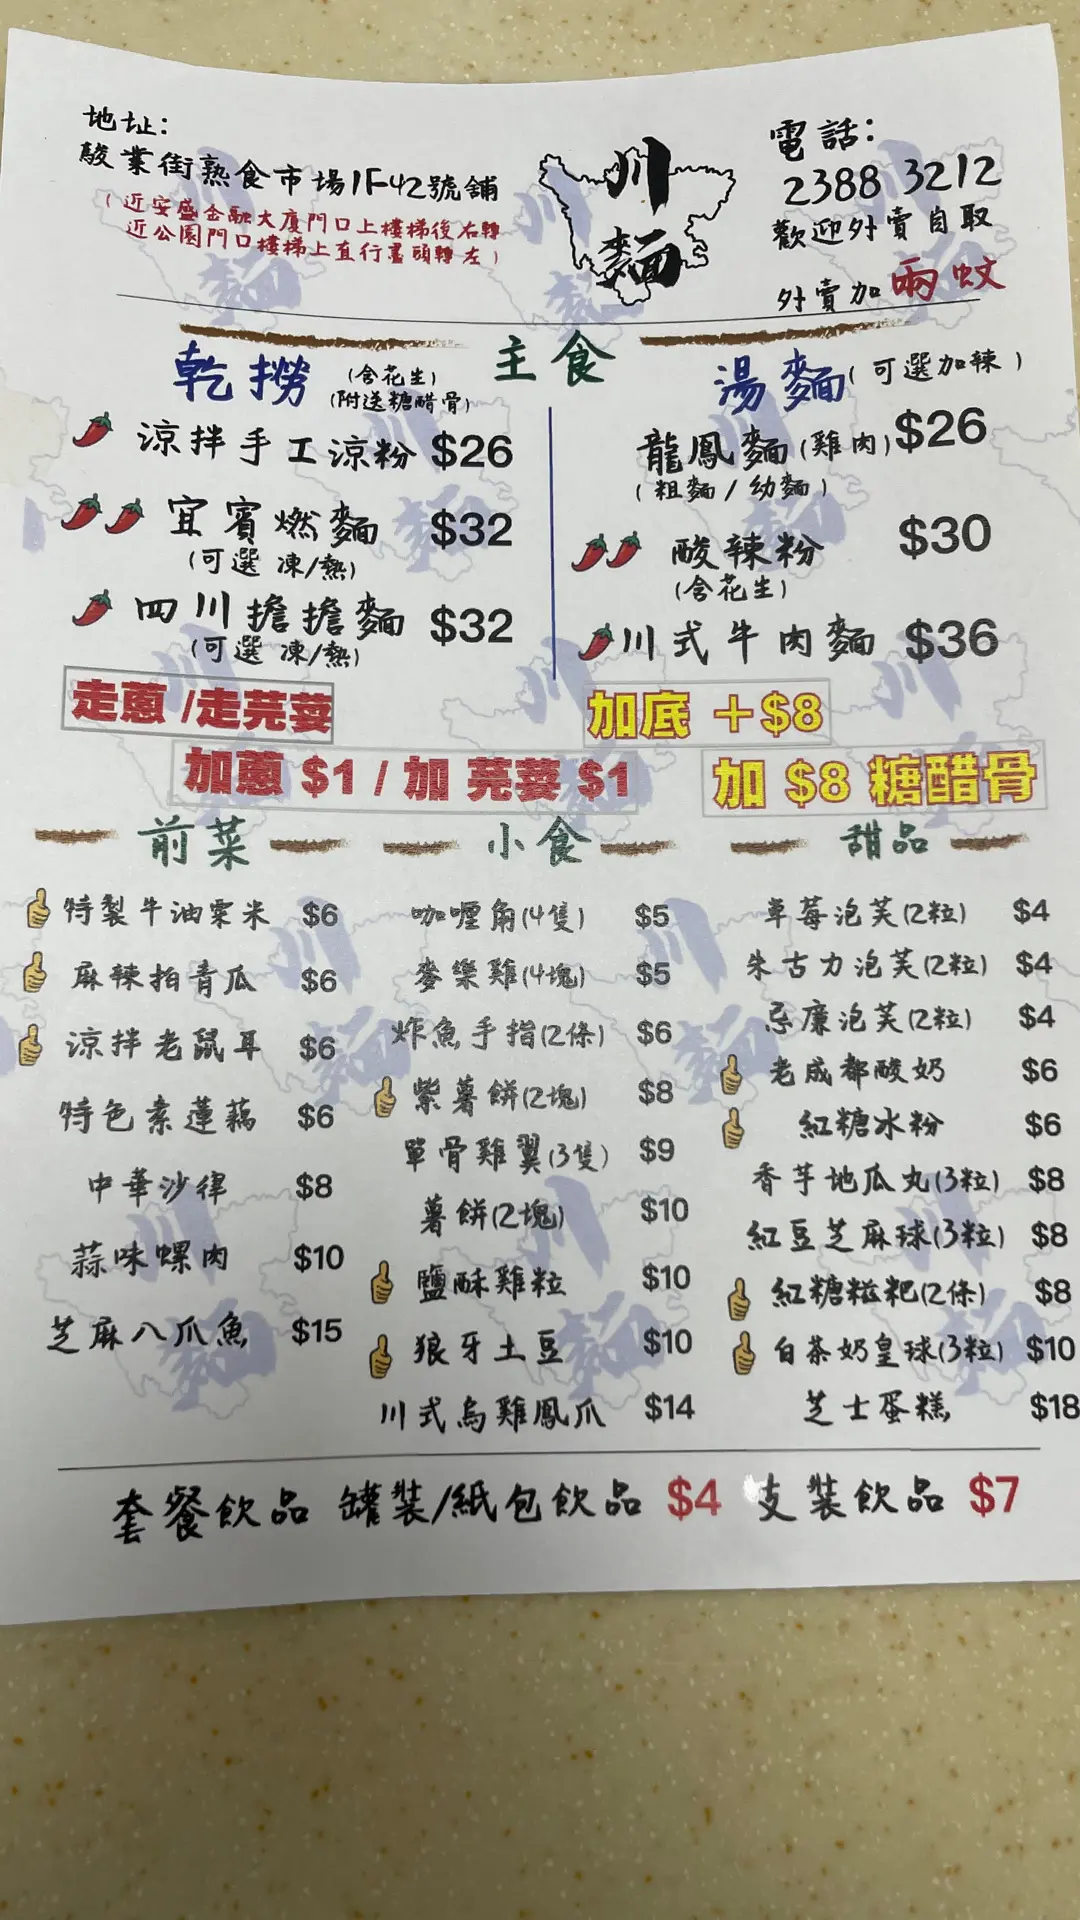 地址:
駿業街熟食市場1F42號舖
(近安盛金融大廈門口上樓梯後右轉
近公園門口樓梯上直行盡頭轉左)
川
麵
電話:
2388 3212
歡迎外賣自取
外賣加兩蚊
主食
乾撈 (含花生)
(附送糖醋骨)
涼拌手工涼粉 $26
宜賓燃麵 $32
(可選 凍/熱)
四川擔擔麵 $32
(可選 凍/熱)
湯麵(可選加辣)
龍鳳麵(雞肉) $26
(粗麵/幼麵)
酸辣粉 $30
(含花生)
川式牛肉麵 $36
走蔥 /走芫荽
加底 +$8
加蔥 $1 / 加 芫荽 $1
加 $8 糖醋骨
前菜
特製牛油粟米 $6
麻辣拍青瓜 $6
涼拌老鼠耳 $6
特色素蓮藕 $6
中華沙律 $8
蒜味螺肉 $10
芝麻八爪魚 $15
小食
咖喱角(4隻) $5
麥樂雞(4塊) $5
炸魚手指(2條) $6
紫薯餅(2塊) $8
單骨雞翼(3隻) $9
薯餅(2塊) $10
鹽酥雞粒 $10
狼牙土豆 $10
川式烏雞鳳爪 $14
甜品
草莓泡芙(2粒) $4
朱古力泡芙(2粒) $4
忌廉泡芙(2粒) $4
老成都酸奶 $6
紅糖冰粉 $6
香芋地瓜丸(3粒) $8
紅豆芝麻球(3粒) $8
紅糖糍粑(2條) $8
白茶奶皇球(3粒) $10
芝士蛋糕 $18
套餐飲品 罐裝/紙包飲品 $4 支裝飲品 $7